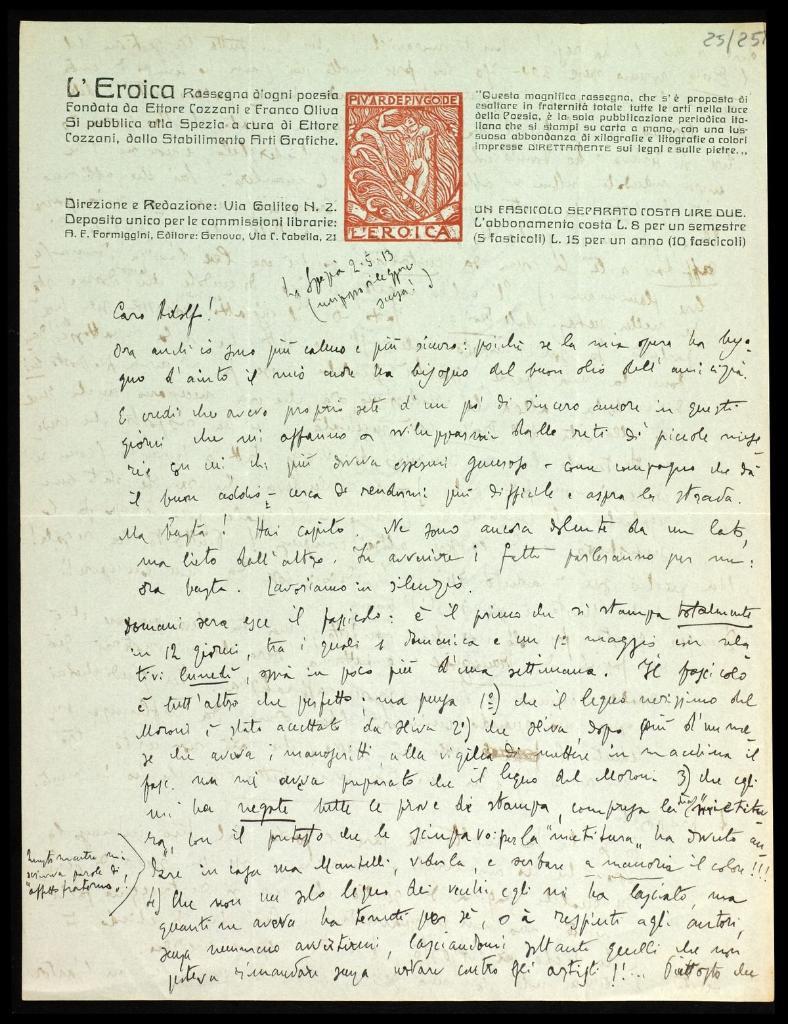 25/25
L'Eroica Rassegna d'ogni poesia
Fondata da Ettore Cozzani e Franco Oliva
Si pubblica alla Spezia a cura di Ettore
Cozzani, dallo Stabilimento Arti Grafiche.
Direzione e Redazione: Via Galileo N. 2.
Deposito unico per le commissioni librarie:
A. F. Formiggini, Editore: Genova, Via C. Cabella, 21
PIV ARDE PIV GODE
L'EROICA
"Questa magnifica rassegna, che s'è proposta di
esaltare in fraternità totale tutte le arti nella luce
della Poesia, è la sola pubblicazione periodica ita-
liana che si stampi su carta a mano, con una lus-
suosa abbondanza di xilografie e litografie a colori
impresse DIRETTAMENTE sui legni e sulle pietre.„
UN FASCICOLO SEPARATO COSTA LIRE DUE.
L'abbonamento costa L. 8 per un semestre
(5 fascicoli) L. 15 per un anno (10 fascicoli)
La Spezia 2-5-13
Caro Adolfo!
Ora anch'io sono più calmo e più sicuro: poichè se la mia opera ha biso-
gno d'aiuto il mio cuore ha bisogno del buon olio dell'amicizia.
E credi che avevo proprio sete d'un po' di sincero amore in questi
giorni che mi affanno a svilupparmi dalle reti di piccole mise-
rie con cui chi più doveva essermi generoso - come compagno che dà
il buon addio - cerca di rendermi più difficile e aspra la strada.
Ma basta! Hai capito. Ne sono ancora dolente da un lato,
ma lieto dall'altro. In avvenire i fatti parleranno per me:
ora basta. Lavoriamo in silenzio.
Domani sera esce il fascicolo: è il primo che si stampa totalmente
in 12 giorni, tra i quali 1 domenica e un 1° maggio con rela-
tivi lunedì, ossia in poco più d'una settimana. Il fascicolo
è tutt'altro che perfetto: ma pensa 1°) che il legno nerissimo del
Moroni è stato accettato da Oliva 2°) che Oliva, dopo più d'un me-
se che aveva i manoscritti alla vigilia di mettere in macchina il
fasc. non mi aveva preparato che il legno del Moroni 3) che egli
mi ha negate tutte le prove di stampa, compresa la "mietitu-
ra", con il pretesto che le sciupavo: per la "mietitura" ho dovuto an-
dare in casa sua Mantelli, vederla, e serbare a memoria il colore!!!
4) Che non un solo legno dei vecchi egli mi ha lasciato, ma
quanti ne aveva ha tenuti per sè, o à respinti agli autori,
senza nemmeno avvertirmi, lasciandomi soltanto quelli che non
poteva rimandare senza urtare contro gli artisti!!... Piuttosto che
Questo mentre mi
scriveva parole di
"affetto fraterno".